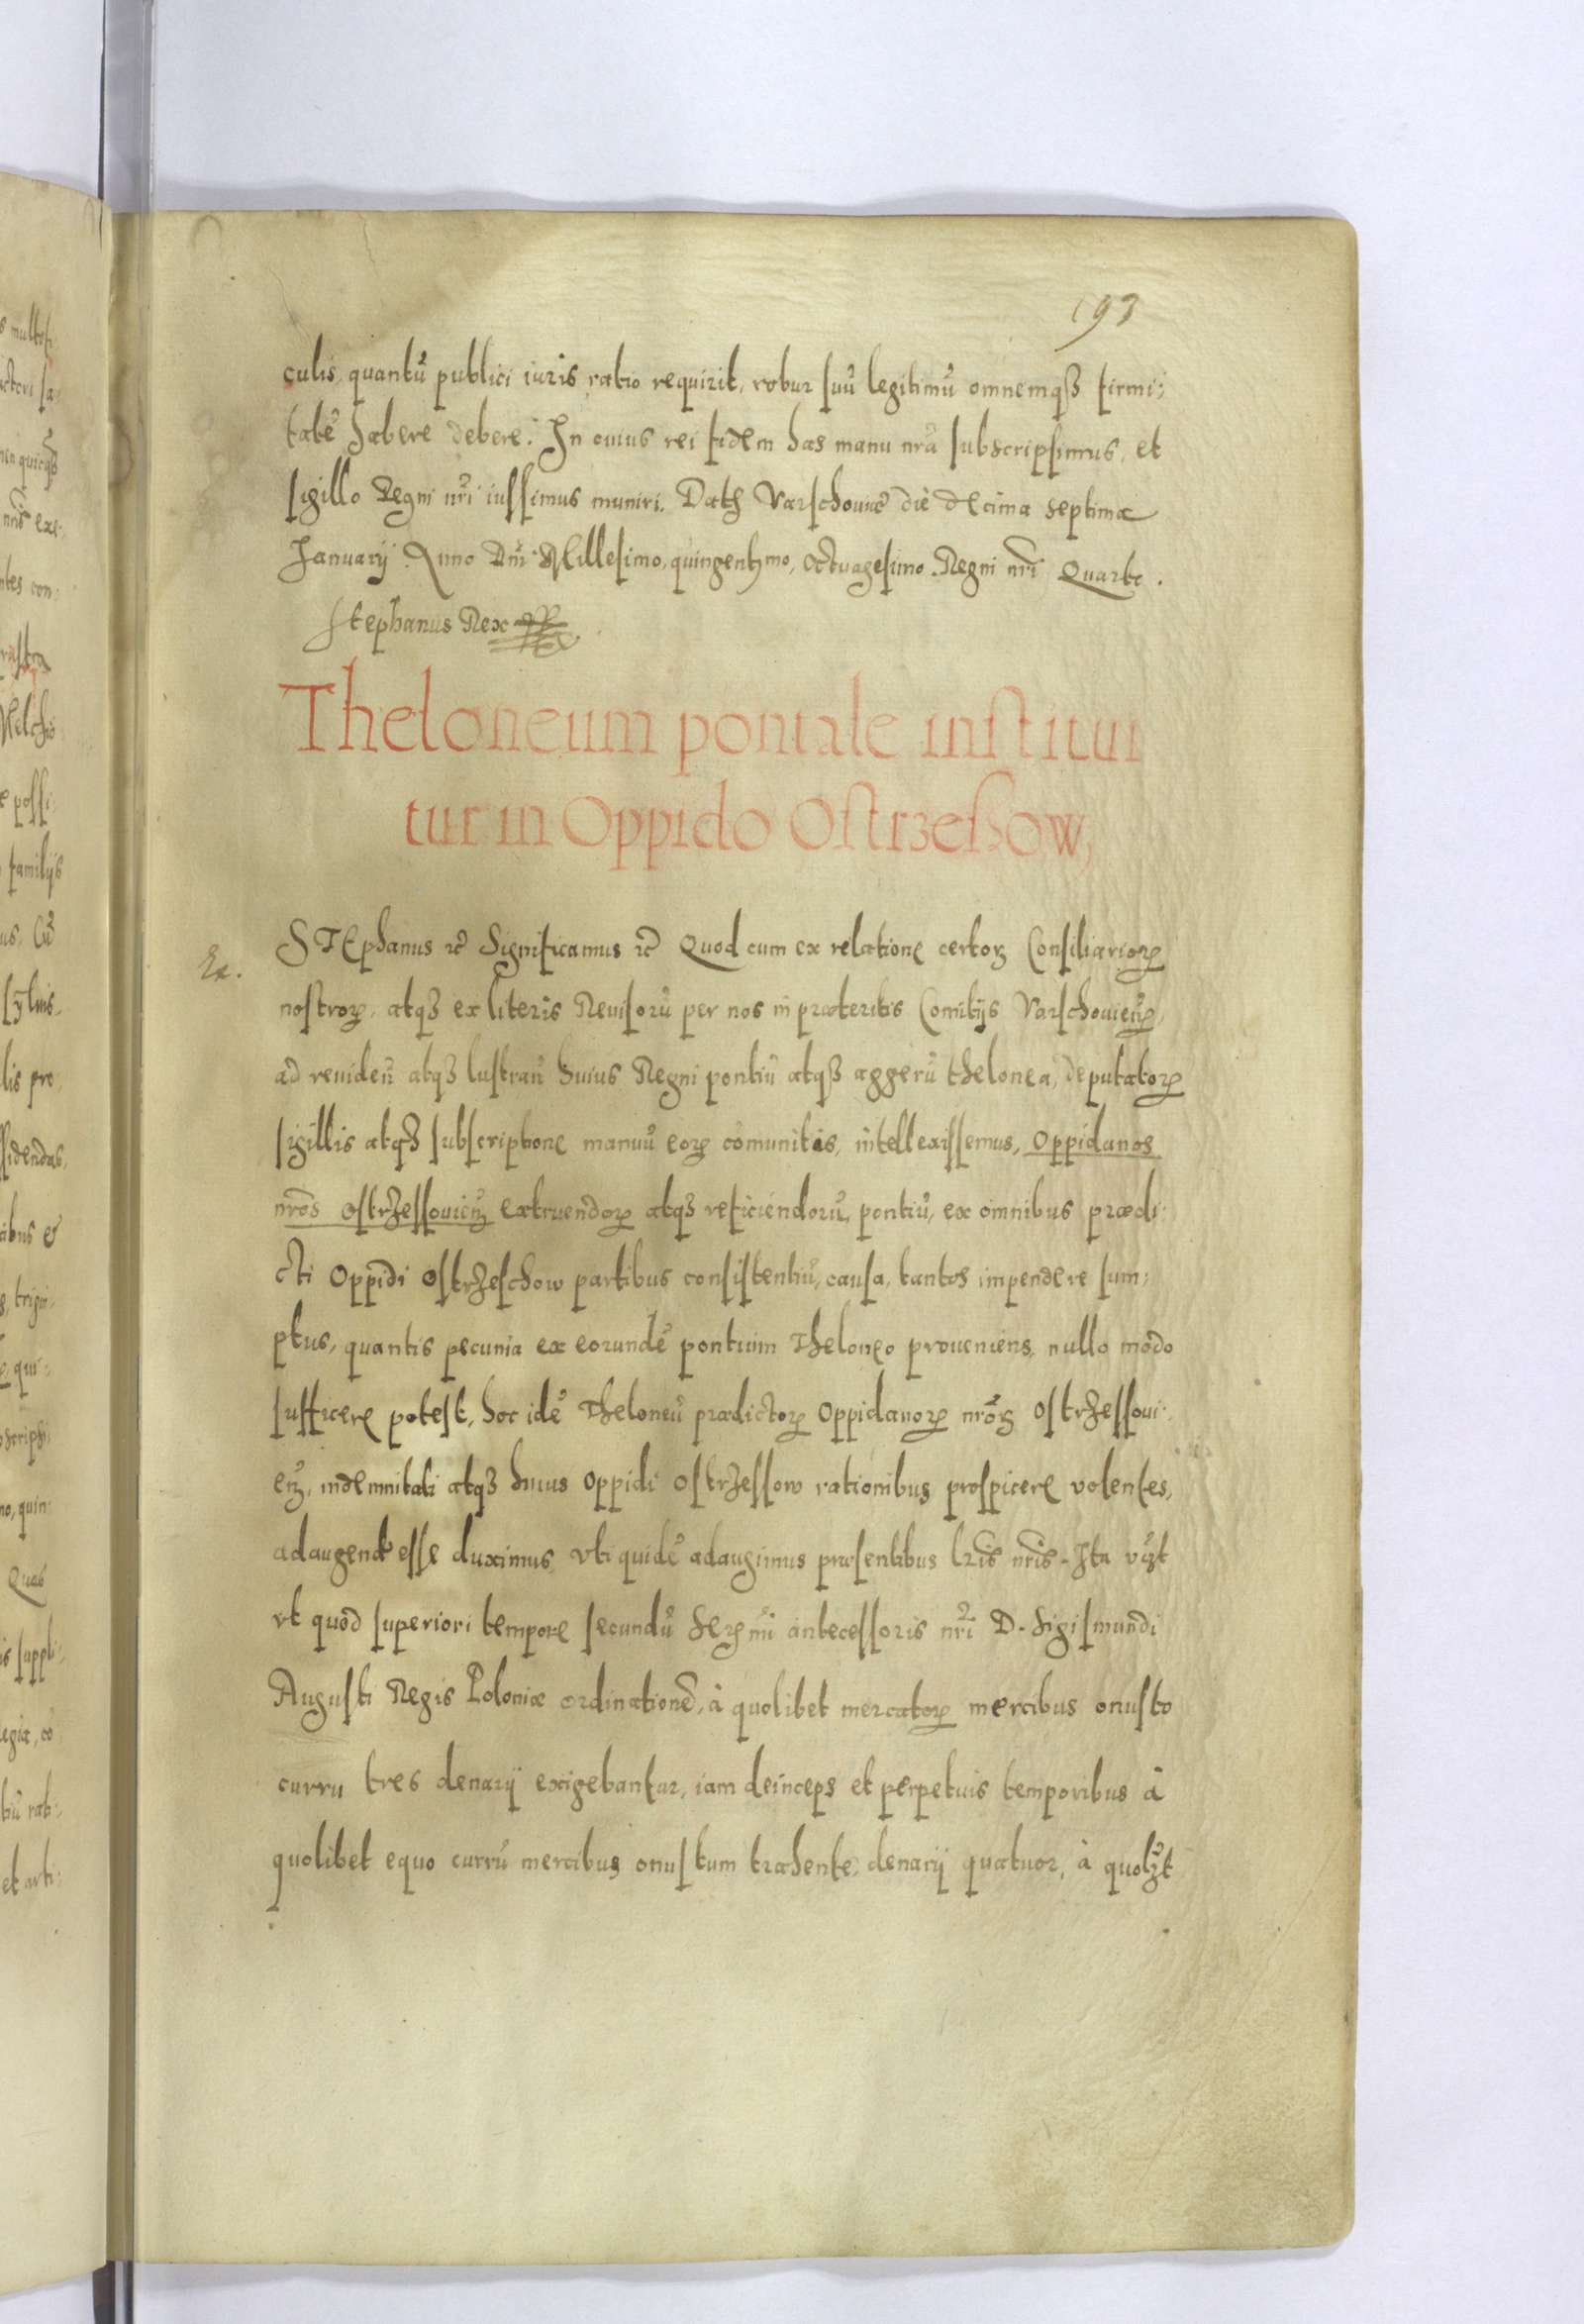 193
culis, quantũ publici iuris ratio requirit, robur suũ legitimũ omnemqꝫ firmi:
tatẽ habere debere. In cuius rei fidem has manu nr̃a subscripsimus, et
sigillo Regni nr̃i iussimus muniri. Datꝫ Varschouiæ die decima septima
Januarij Anno Dñi Millesimo, quingentꝫmo, Octuagesimo. Regni nr̃i Quarto.
Stephanus Rex
Theloneum pontale instituі
tur in Oppido Ostrzeschow,
Ex.
STEphanus ꝛc̃ Significamus ꝛc̃ Quod cum ex relatione certoꝝ Consiliarioꝝ
nostroꝝ, atqꝫ ex literis Reuisorũ per nos in præteritis Comitijs Varschouieñ,
ad reuideñ atqꝫ lustrañ huius Regni pontiũ atqꝫ aggerũ thelonea, deputatoꝝ
sigillis atqꝫ subscriptione manuũ eoꝝ cõmunitis, intellexissemus, Oppidanos
nr̃os Ostrzessouieñ extruendoꝝ atqꝫ reficiendorũ, pontiũ, ex omnibus prædi:
cti Oppidi Ostrzeschow partibus consistentiũ, causa, tantos impendere sum:
ptus, quantis pecunia ex eorundẽ pontium Theloneo proueniens, nullo modo
sufficere potest, hoc idẽ Theloneũ prædictoꝝ Oppidanoꝝ nr̃oꝝ Ostrzessoui:
eñ, indemnitati atqꝫ huius Oppidi Ostrzessow rationibus prospicere volentes,
adaugend esse duximus, vti quidẽ adaugimus præsentibus lr̃is nr̃is. Ita vꝫt
vt quod superiori tempore secundũ Serꝫmi antecessoris nr̃i D. Sigismundi
Augusti Regis Poloniæ ordinationẽ, à quolibet mercatoꝝ mercibus onusto
curru tres denarij exigebantur, iam deinceps et perpetuis temporibus à
quolibet equo currũ mercibus onustum trahente, denarij quatuor, à quolꝫt